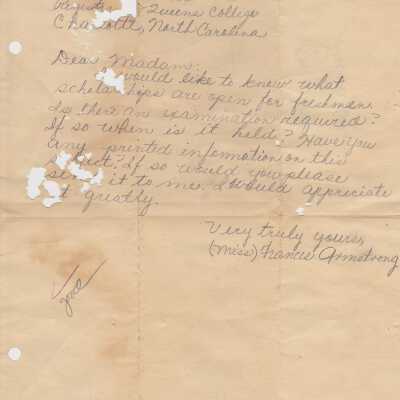 Queens College
Charlotte, North Carolina
Dear Madam:
would like to know what
scholarships are open for freshmen.
Is there an examination required?
If so when is it held? Have you
any printed information on this
If so would you please
it to me. I would appreciate
it greatly.
Very truly yours,
(Miss) Francis Armstrong
good